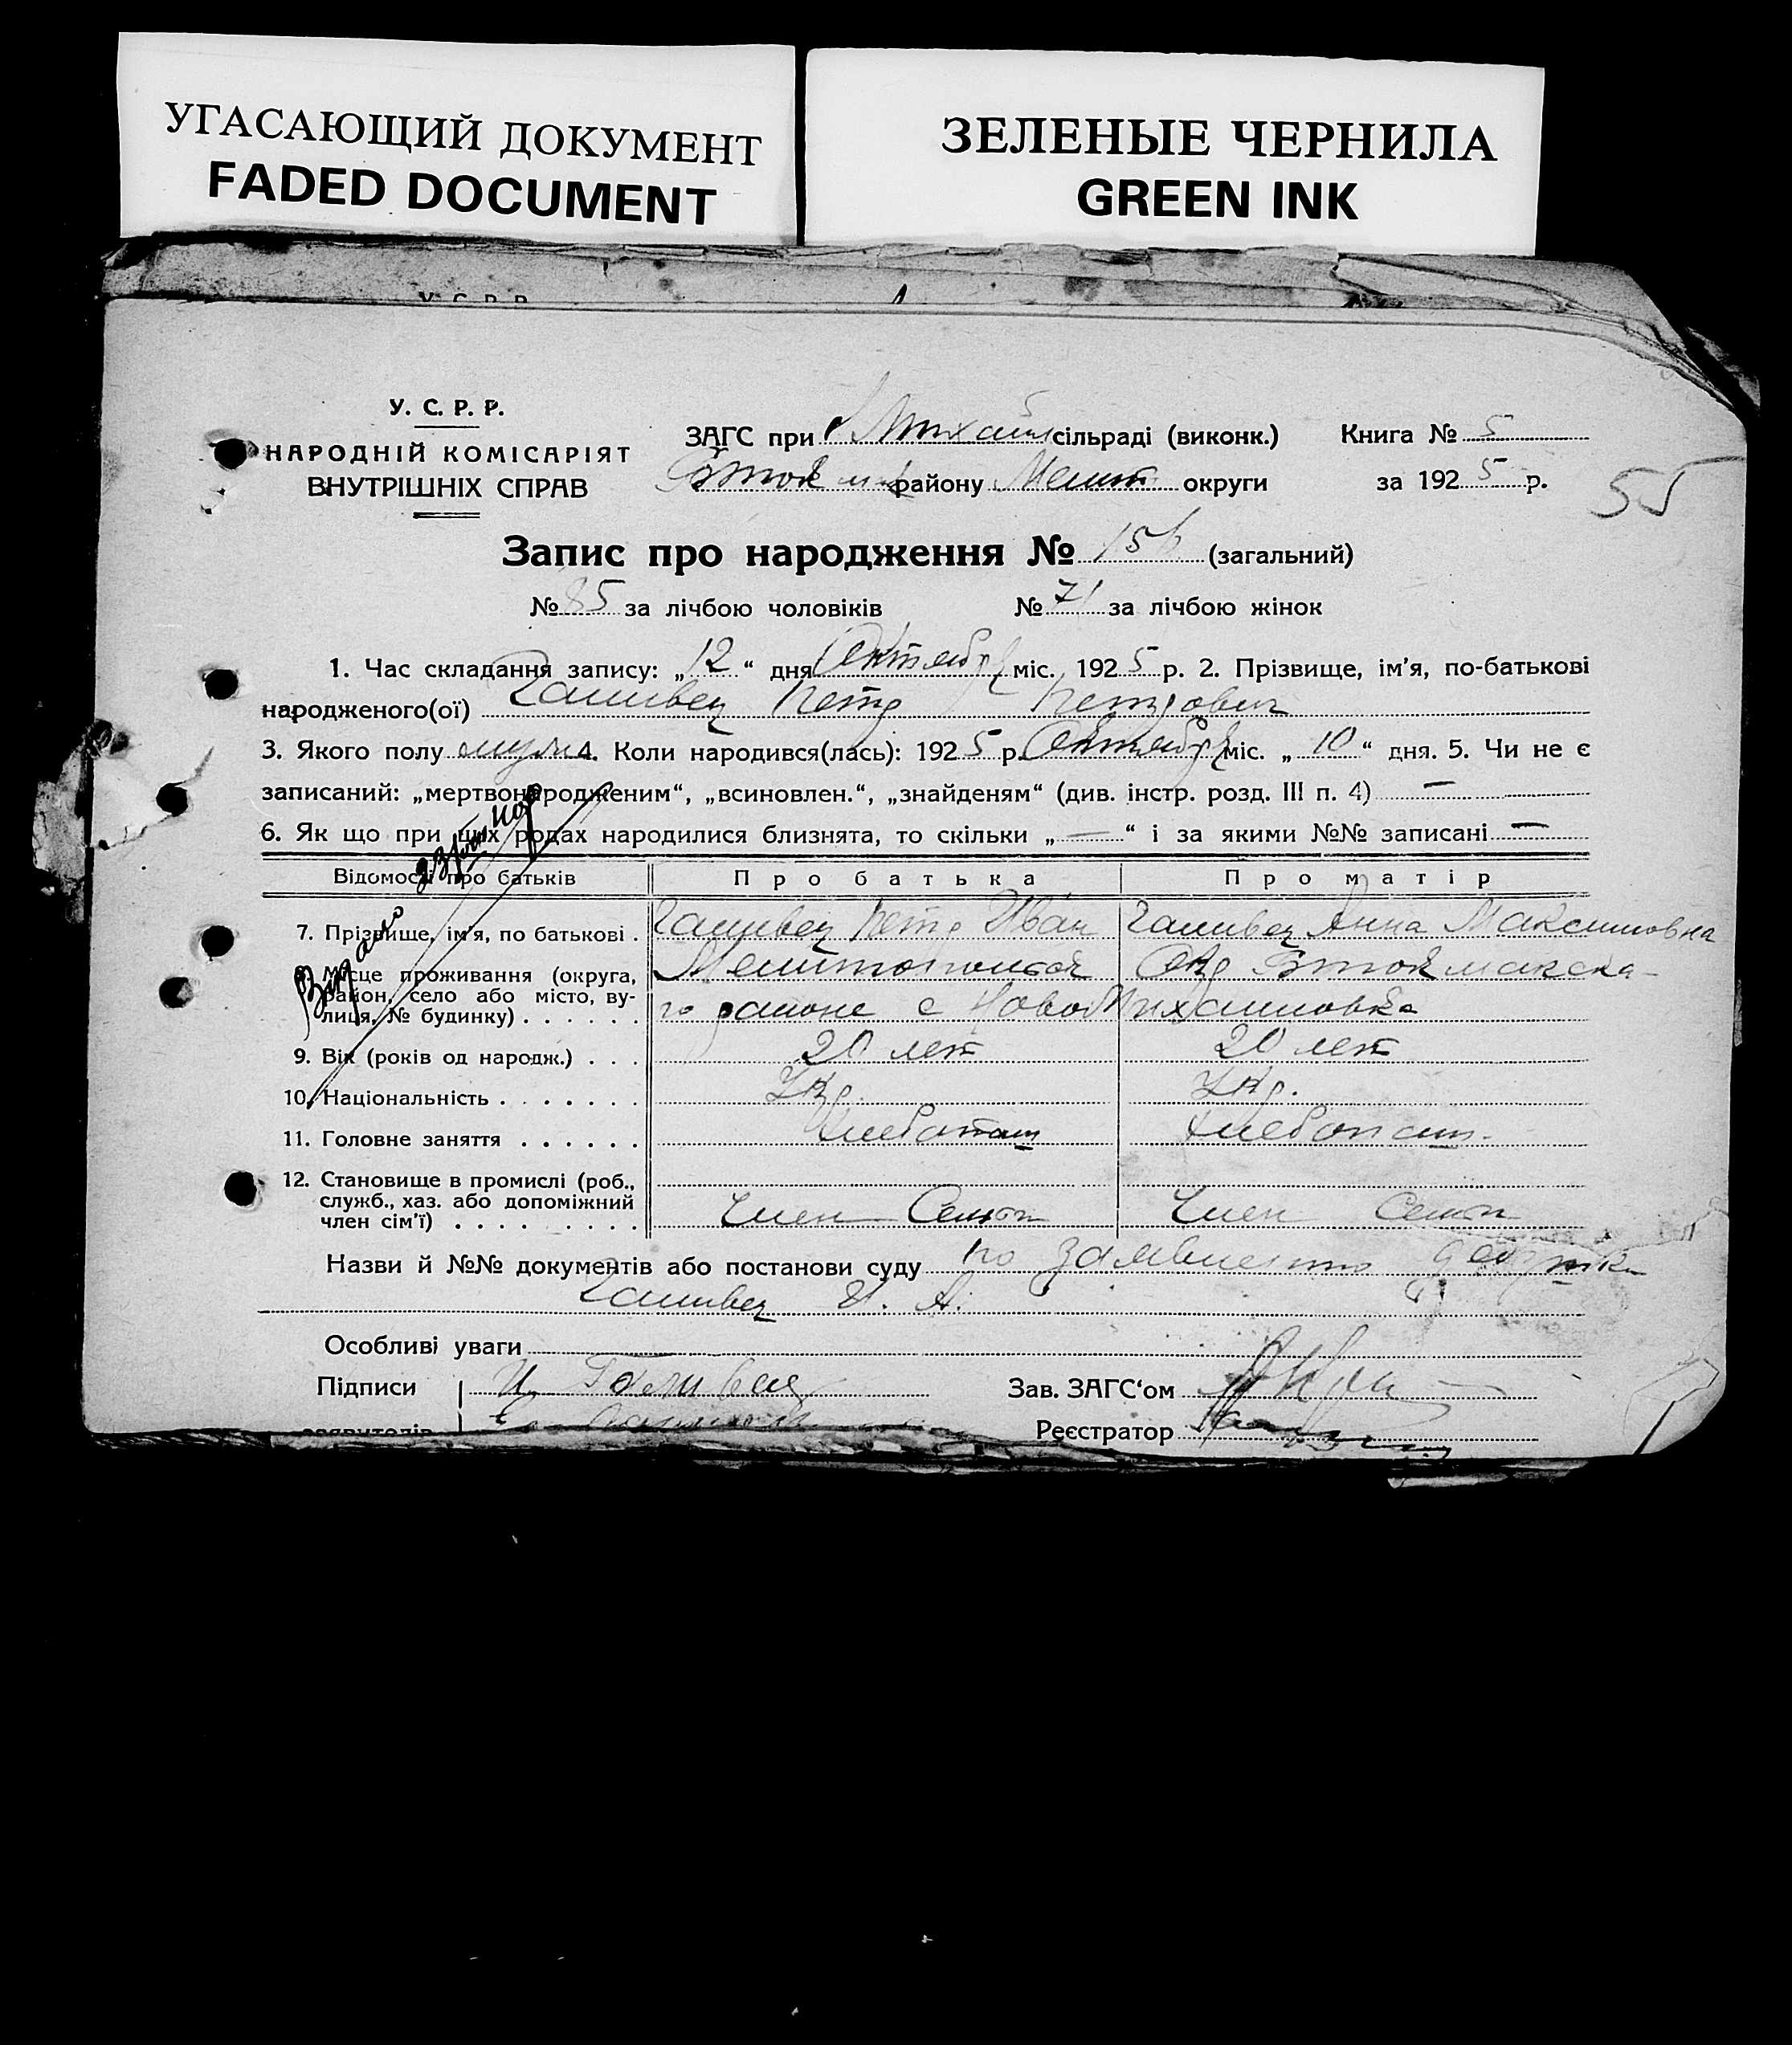 УГАСАЮЩИЙ ДОКУМЕНТ
FADED DOCUMENT
ЗЕЛЕНЫЕ ЧЕРНИЛА
GREEN INK
У. С. Р. Р.
У. С. Р. Р.
НАРОДНІЙ КОМІСАРІЯТ
ВНУТРІШНІХ СПРАВ
ЗАГС при сільраді (виконк.) Книга № 5
району Мелит округи за 192 5 р.
55
Запис про народження № 156 (загальний)
№ 85 за лічбою чоловіків № 71 за лічбою жінок
1. Час складання запису: „ 12 “ дня Октября міс. 192 5 р. 2. Прізвище, ім’я, по-батькові
народженого(ої) Галивец Петр Петрович
3. Якого полу муж 4. Коли народився(лась): 192 5 р. Октября міс. „ 10 “ дня. 5. Чи не є
записаний: „мертвонародженим“, „всиновлен.“, „знайденям“ (див. інстр. розд. III п. 4) —
6. Як що при цих родах народилися близнята, то скільки „ — “ і за якими №№ записані —
Відомості про батьків Про батька Про матір
7. Прізвище, ім’я, по батькові . Галивец Петр Иван Галивец Анна Максимовна
8. Місце проживання (округа, район, село або місто, вулиця, № будинку) . . . . . . Мелитопольск Окр Втокмакска-
го районе с НовоМихайловка
9. Вік (років од народж.) . . . 20 лет 20 лет
10. Національність . . . . . . . Укр. Укр.
11. Головне заняття . . . . . . Хлебопаш Хлебопаш.
12. Становище в промислі (роб.,
служб., хаз. або допоміжний
член сім’ї) . . . . . . . . . Член Семьи Член Семьи
Видано
Назви й №№ документів або постанови суду по заявлению дедушки
Галивец И. А.
Особливі уваги
Підписи И. Галивец Зав. ЗАГС‘ом
заявителів Реєстратор